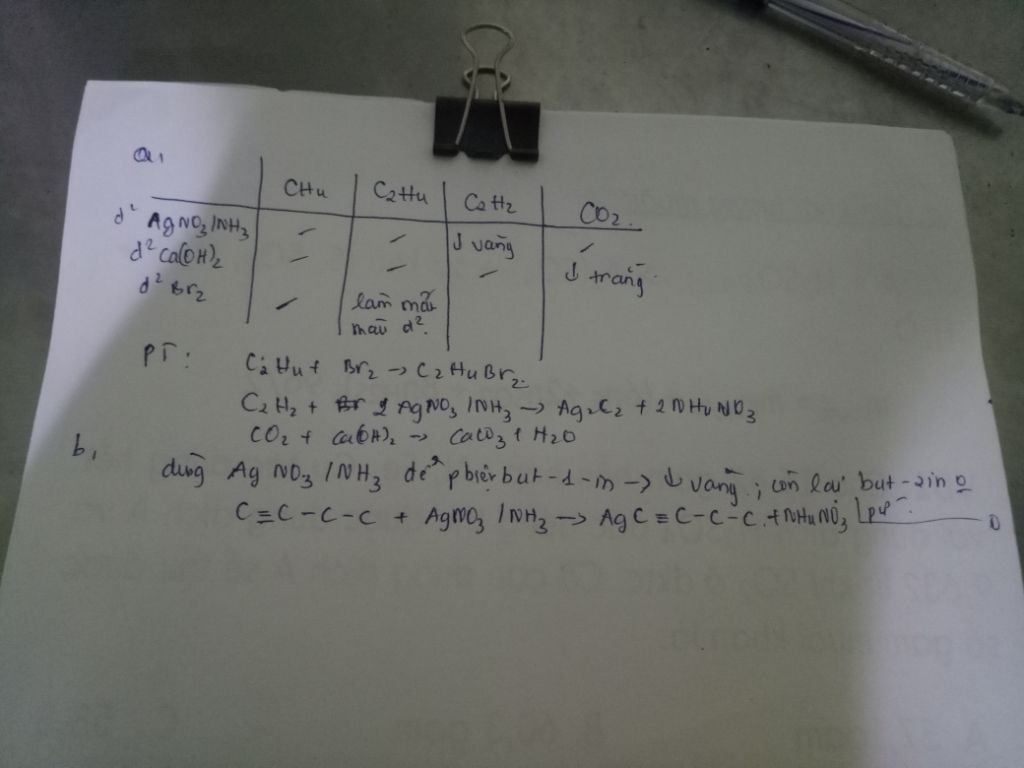 a,
CH4 C2H4 C2H2 CO2.
d² AgNO3/NH3 - - ↓ vàng -
d² Ca(OH)2 - - - ↓ trắng.
d² Br2 - làm mất
màu d².
PT: C2H4 + Br2 → C2H4Br2.
C2H2 + 2 AgNO3/NH3 → Ag2C2 + 2NH4NO3
CO2 + Ca(OH)2 → CaCO3 + H2O
b,
dùng AgNO3/NH3 để pbiệt but-1-in → ↓ vàng; còn lại but-2in o
C≡C-C-C + AgNO3/NH3 → AgC≡C-C-C. + NH4NO3 pư.